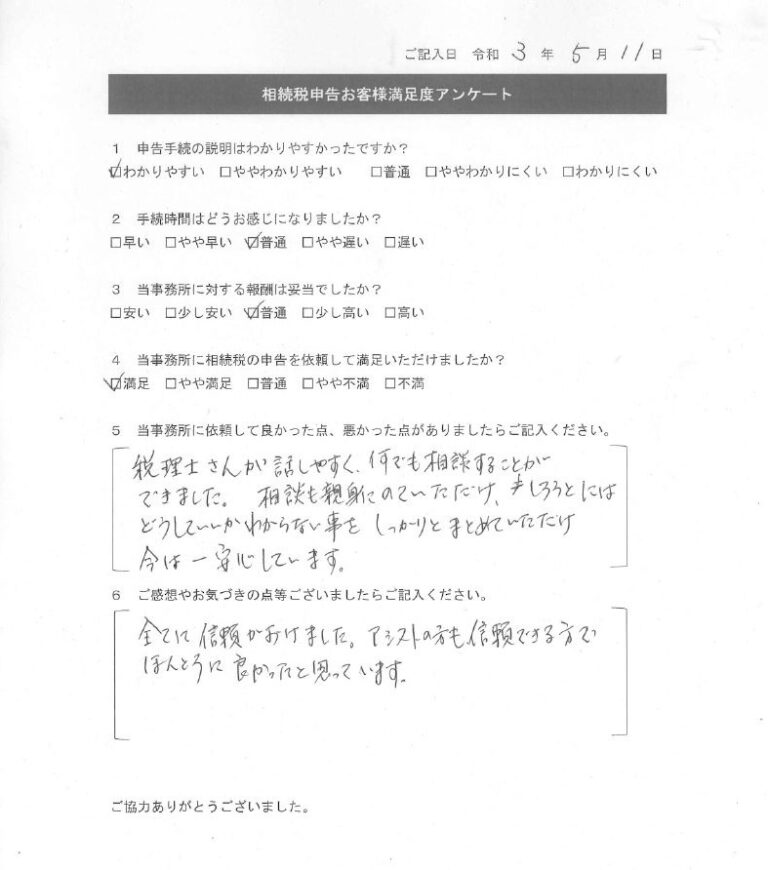 ご記入日 令和 3 年 5 月 11 日
相続税申告お客様満足度アンケート
1 申告手続の説明はわかりやすかったですか?
☑わかりやすい □ややわかりやすい □普通 □ややわかりにくい □わかりにくい
2 手続時間はどうお感じになりましたか?
□早い □やや早い ☑普通 □やや遅い □遅い
3 当事務所に対する報酬は妥当でしたか?
□安い □少し安い ☑普通 □少し高い □高い
4 当事務所に相続税の申告を依頼して満足いただけましたか?
☑満足 □やや満足 □普通 □やや不満 □不満
5 当事務所に依頼して良かった点、悪かった点がありましたらご記入ください。
税理士さんが話しやすく、何でも相談することが
できました。 相談も親身にのていただけ、しろうとには
どうしていいかわからない事を しっかりとまとめていただけ
今は一安心しています。
6 ご感想やお気づきの点等ございましたらご記入ください。
全てに信頼がおけました。アシストの方も、信頼できる方で
ほんとうに良かったと思っています。
ご協力ありがとうございました。